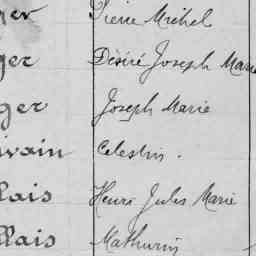 ger Pierre Michel
ger Désiré Joseph Marie
ger Joseph Marie
ivain Celestin.
lais Henri Jules Marie
llais Mathurin